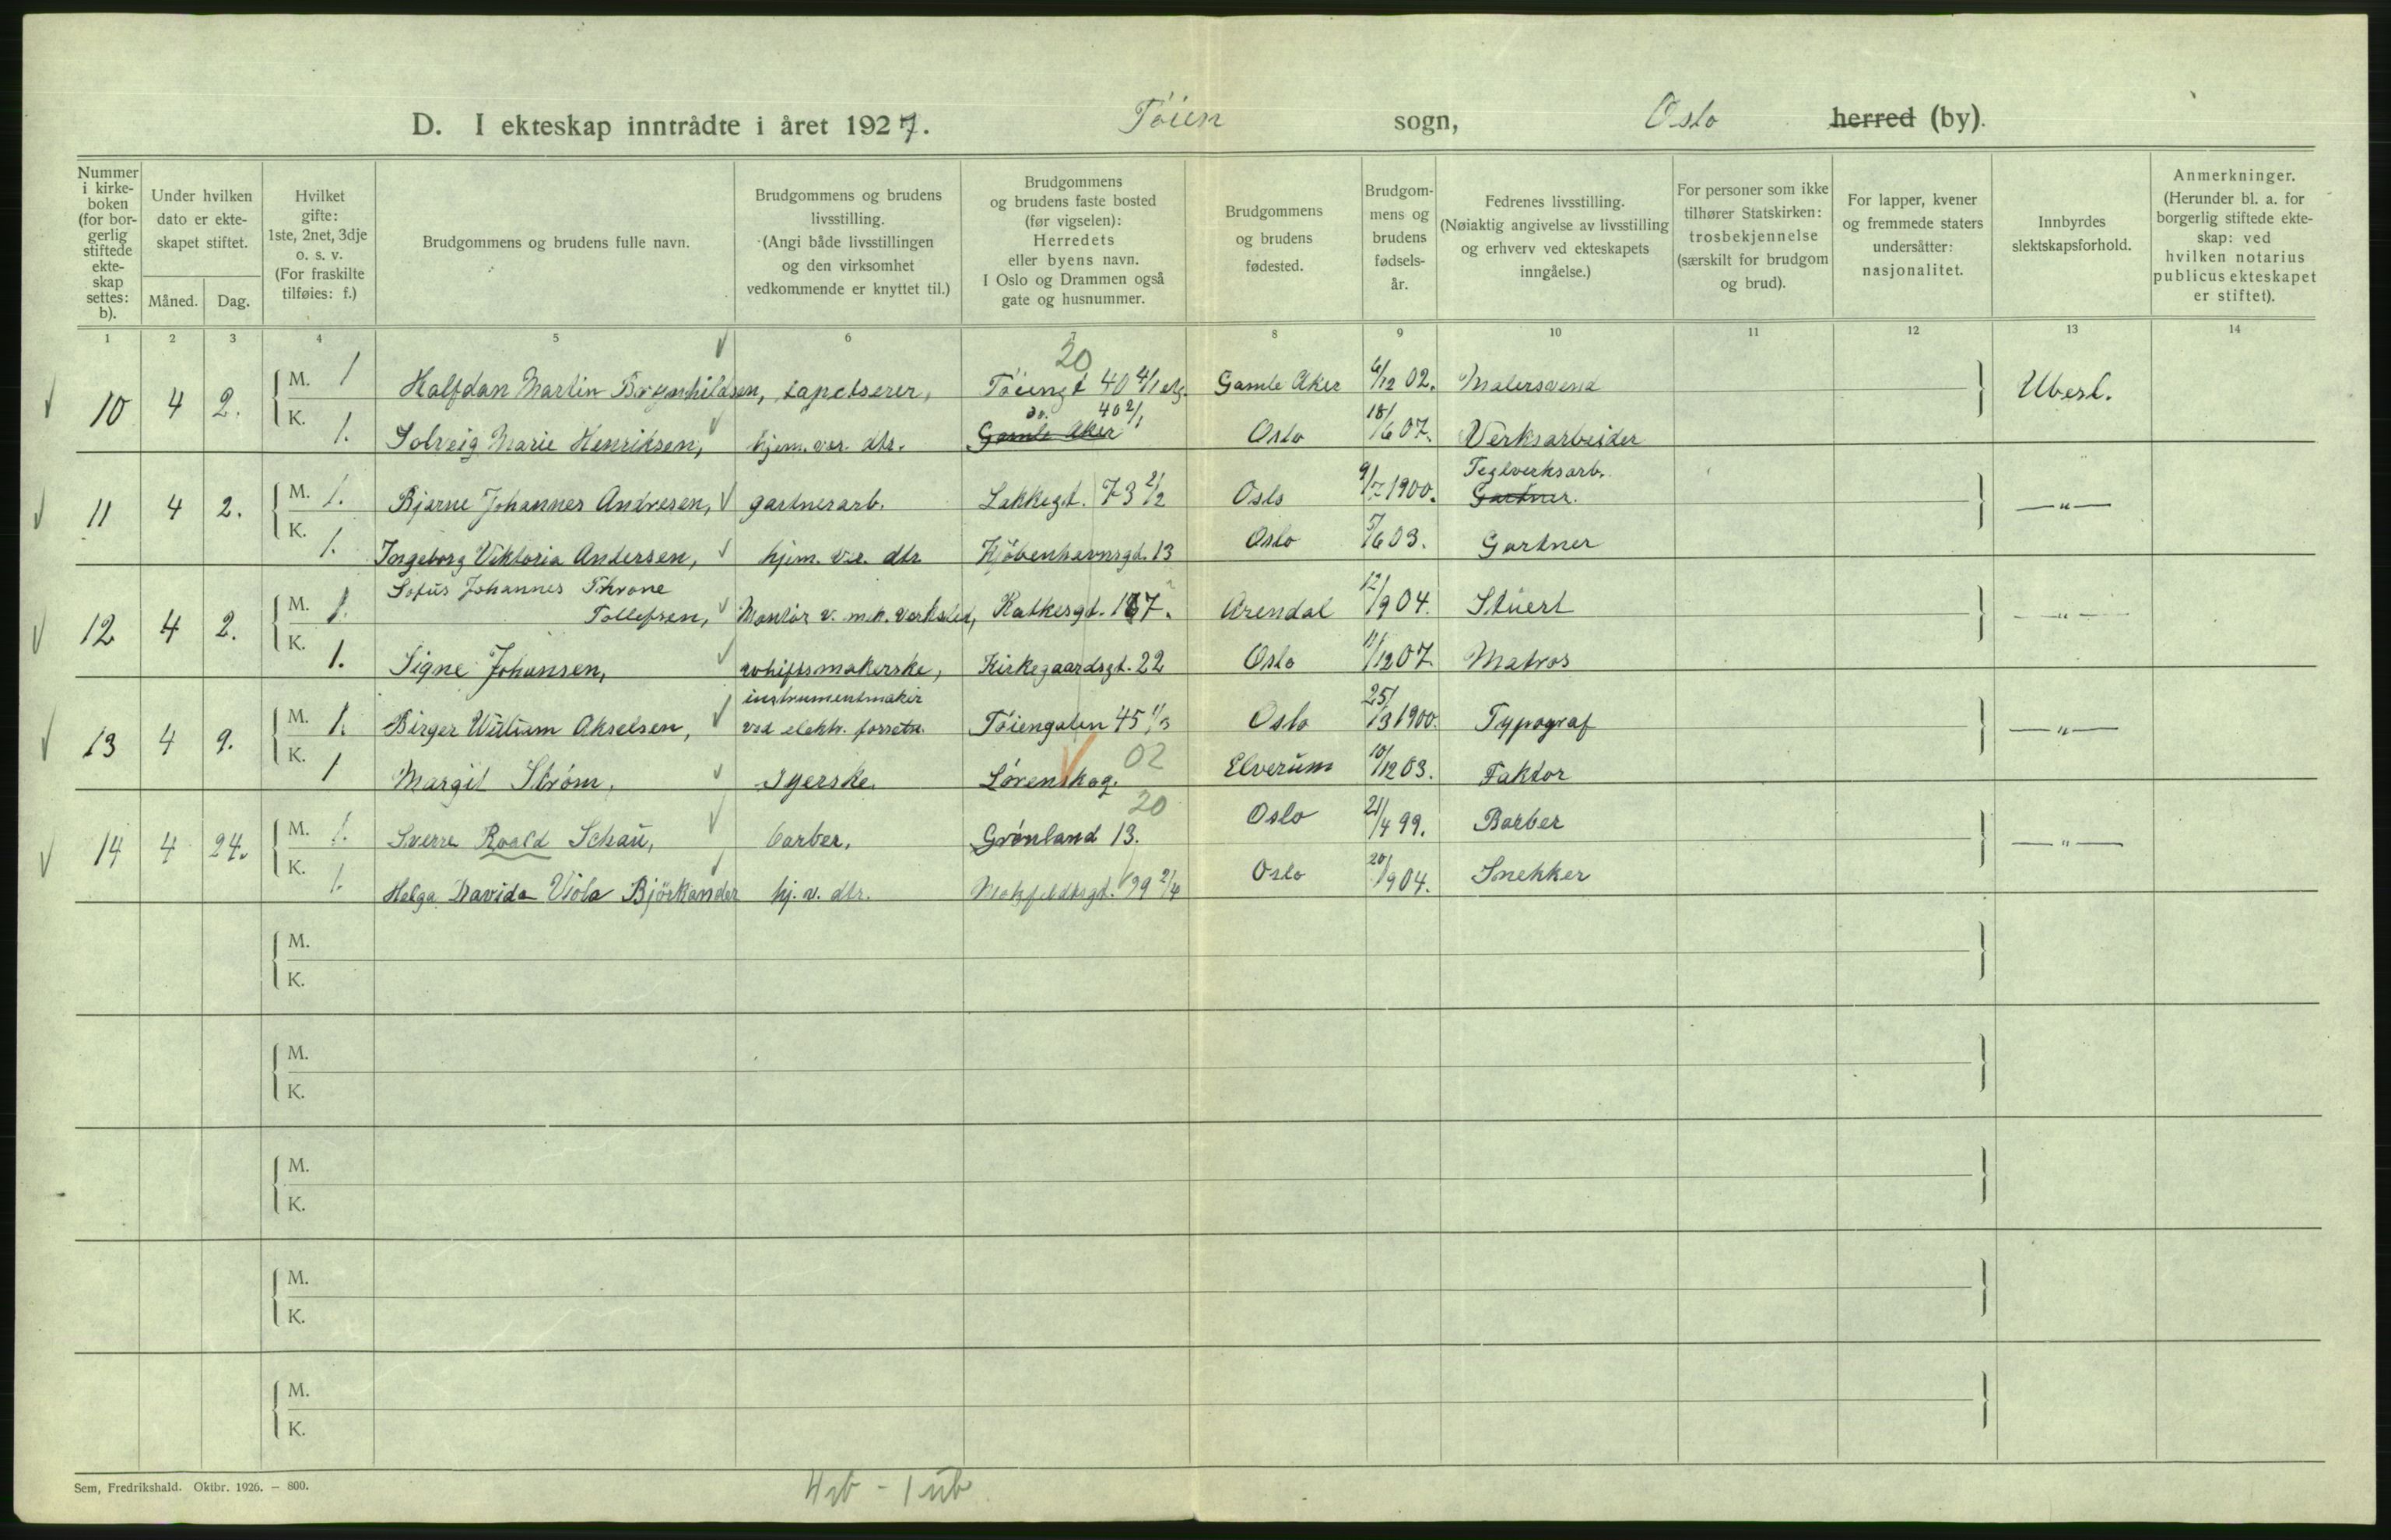 D. I ekteskap inntrådte i året 1927. Tøien sogn, Oslo herred (by).
Nummer i kirke-boken (for bor-gerlig stiftede ekte-skap settes: b).
Under hvilken dato er ekte-skapet stiftet.
Måned. Dag.
Hvilket gifte: 1ste, 2net, 3dje o. s. v. (For fraskilte tilføies: f.)
Brudgommens og brudens fulle navn.
Brudgommens og brudens livsstilling. (Angi både livsstillingen og den virksomhet vedkommende er knyttet til.)
Brudgommens og brudens faste bosted (før vigselen): Herredets eller byens navn. I Oslo og Drammen også gate og husnummer.
Brudgommens og brudens fødested.
Brudgom-mens og brudens fødsels-år.
Fedrenes livsstilling. (Nøiaktig angivelse av livsstilling og erhverv ved ekteskapets inngåelse.)
For personer som ikke tilhører Statskirken: trosbekjennelse (særskilt for brudgom og brud).
For lapper, kvener og fremmede staters undersåtter: nasjonalitet.
Innbyrdes slektskapsforhold.
Anmerkninger. (Herunder bl. a. for borgerlig stiftede ekte-skap: ved hvilken notarius publicus ekteskapet er stiftet).
1 2 3 4 5 6 8 9 10 11 12 13 14
20
10 4 2. M. 1 Halfdan Martin Brynhildsen, tapetserer, Tøiengt 40 4/1 etg. Gamle Aker 6/12 02. Malersvend Ubesl.
do. 40 2/1
K. 1. Solveig Marie Henriksen, hjem. vær. dtr. Gamle Aker Oslo 18/6 07. Verksarbeider
Teglverksarb.
11 4 2. M. 1. Bjarne Johannes Andresen, gartnerarb. Lakkegt. 73 2/2 Oslo 9/7 1900. Gartner. —"—
K. 1. Ingeborg Viktoria Andersen, hjem. v. dtr. Kjøbenhavnsgt. 13 Oslo 5/6 03. Gartner
Sofus Johannes Throne
12 4 2. M. 1. Tollefsen, Montør v. mek. verksted, Ratkesgt. 17. Arendal 12/9 04. Stuert —"—
K. 1. Signe Johansen, Kirkegaardsgt. 22 Oslo 11/12 07. Matros
instrumentmaker
13 4 9. M. 1. Birger William Akselsen, ved elektr. forretn. Tøiengaten 45 1/3 Oslo 25/3 1900. Typograf —"—
02
K. 1 Margit Strøm. Syerske. Lørenskog. Elverum 10/12 03. Faktor
20
14 4 24. M. 1. Sverre Roald Schau, barber. Grønland 13. Oslo 21/4 99. Barber —"—
K. 1. Helga Davida Viola Björkander hj. v. dtr. Motzfeldtsgt. 39 2/4 Oslo 20/9 04. Snekker
M.
K.
M.
K.
M.
K.
M.
K.
M.
K.
Sem, Fredrikshald. Oktbr. 1926. — 800.